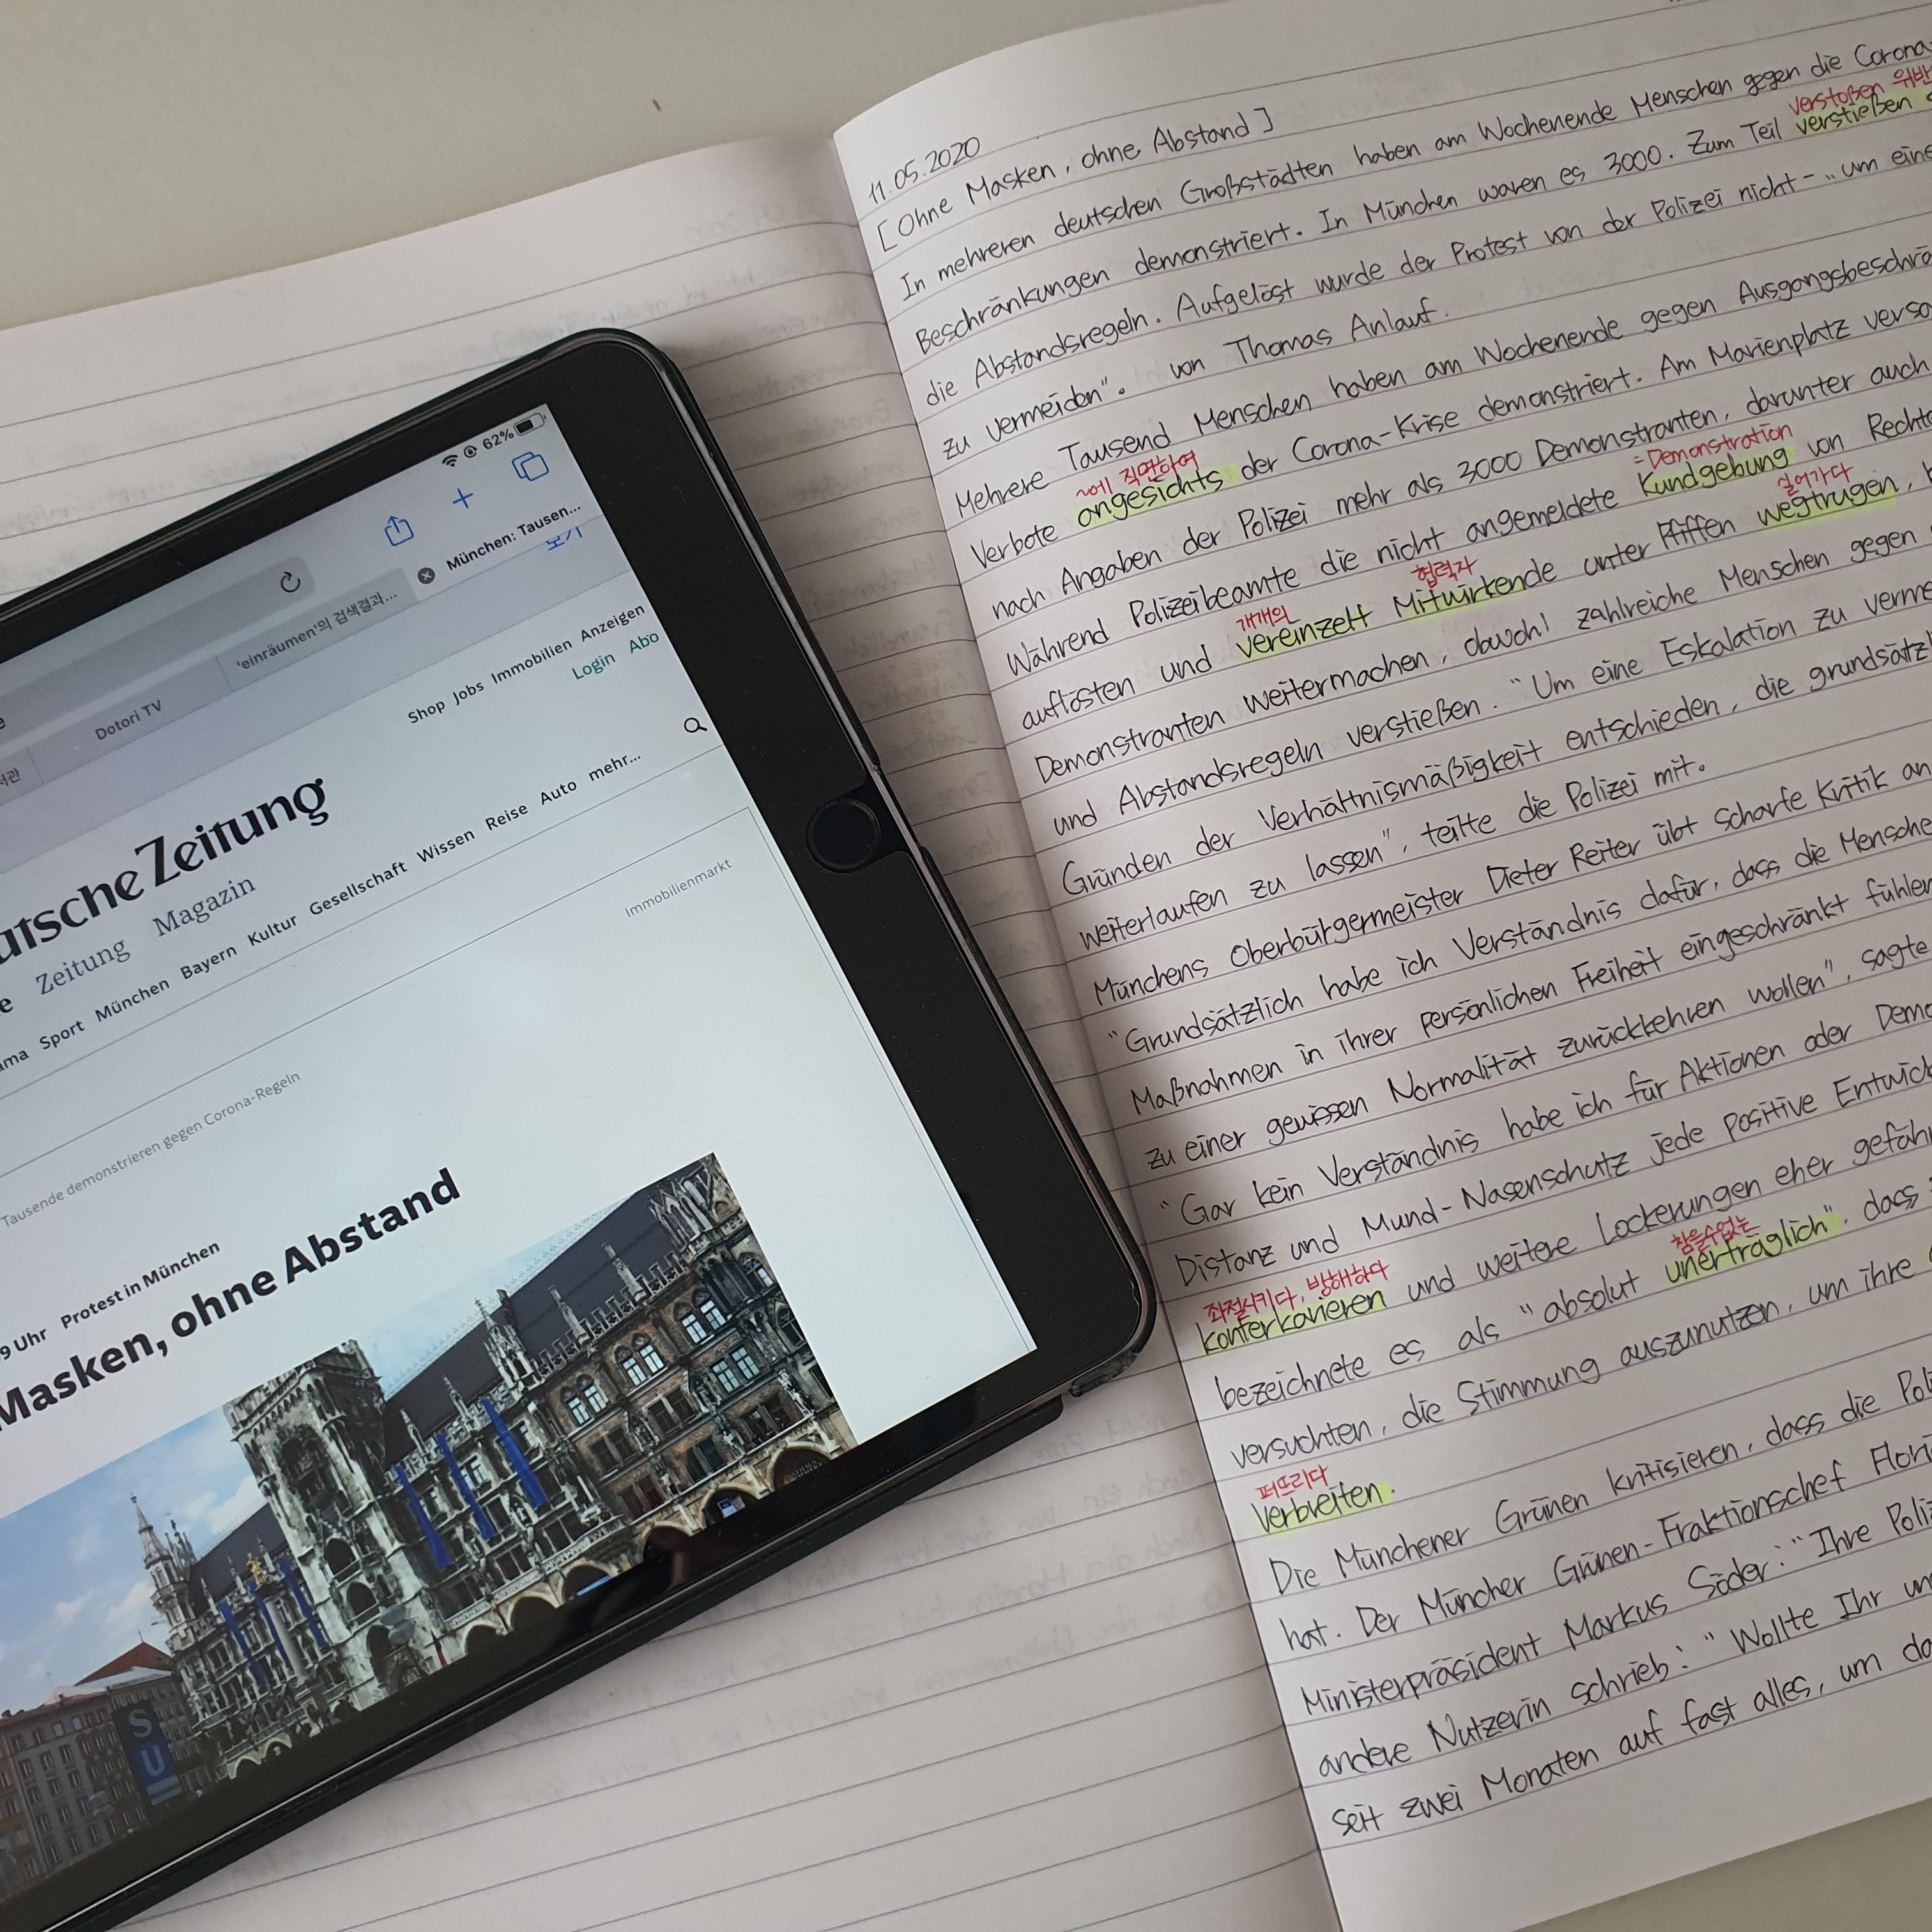 62%
München: Tausen...
보기
'einräumen'의 검색결과...
Dotori TV
서관
Shop Jobs Immobilien Anzeigen
Login Abo
utsche Zeitung
e Zeitung Magazin
ama Sport München Bayern Kultur Gesellschaft Wissen Reise Auto mehr...
Immobilienmarkt
Tausende demonstrieren gegen Corona-Regeln
9 Uhr Protest in München
Masken, ohne Abstand
S
U
11.05.2020
[Ohne Masken, ohne Abstand]
In mehreren deutschen Großstädten haben am Wochenende Menschen gegen die Corona-
verstoßen 위반
Beschränkungen demonstriert. In München waren es 3000. Zum Teil verstießen
die Abstandsregeln. Aufgelöst wurde der Protest von der Polizei nicht - „um eine
zu vermeiden". von Thomas Anlauf.
Mehrere Tausend Menschen haben am Wochenende gegen Ausgangsbeschrä
~에 직면하여
Verbote angesichts der Corona-Krise demonstriert. Am Marienplatz versa
nach Angaben der Polizei mehr als 3000 Demonstranten, darunter auch
=Demonstration
Während Polizeibeamte die nicht angemeldete Kundgebung von Rechts
개개의 협력자 실어가다
auflösten und vereinzelt Mitwirkende unter Pfiffen wegtrugen,
Demonstranten weitermachen, obwohl zahlreiche Menschen gegen
und Abstandsregeln verstießen. "Um eine Eskalation zu verme
Gründen der Verhältnismäßigkeit entschieden, die grundsätzl
weiterlaufen zu lassen", teilte die Polizei mit.
Münchens Oberbürgermeister Dieter Reiter übt scharfe Kritik an
"Grundsätzlich habe ich Verständnis dafür, dass die Mensche
Maßnahmen in ihrer persönlichen Freiheit eingeschränkt fühlen
zu einer gewissen Normalität zurückkehren wollen", sagte
"Gar kein Verständnis habe ich für Aktionen oder Demo
Distanz und Mund-Nasenschutz jede positive Entwick
좌절시키다, 방해하다
konterkarieren und weitere Lockerungen eher gefäh
참을수없는
bezeichnete es als "absolut unerträglich", dass
versuchten, die Stimmung auszunutzen, um ihre
퍼뜨리다
verbreiten.
Die Münchener Grünen kritisieren, dass die Poli
hat. Der Müncher Grünen-Fraktionschef Flori
Ministerpräsident Markus Söder: "Ihre Poliz
andere Nutzerin schrieb: "Wollte Ihr un
seit zwei Monaten auf fast alles, um da